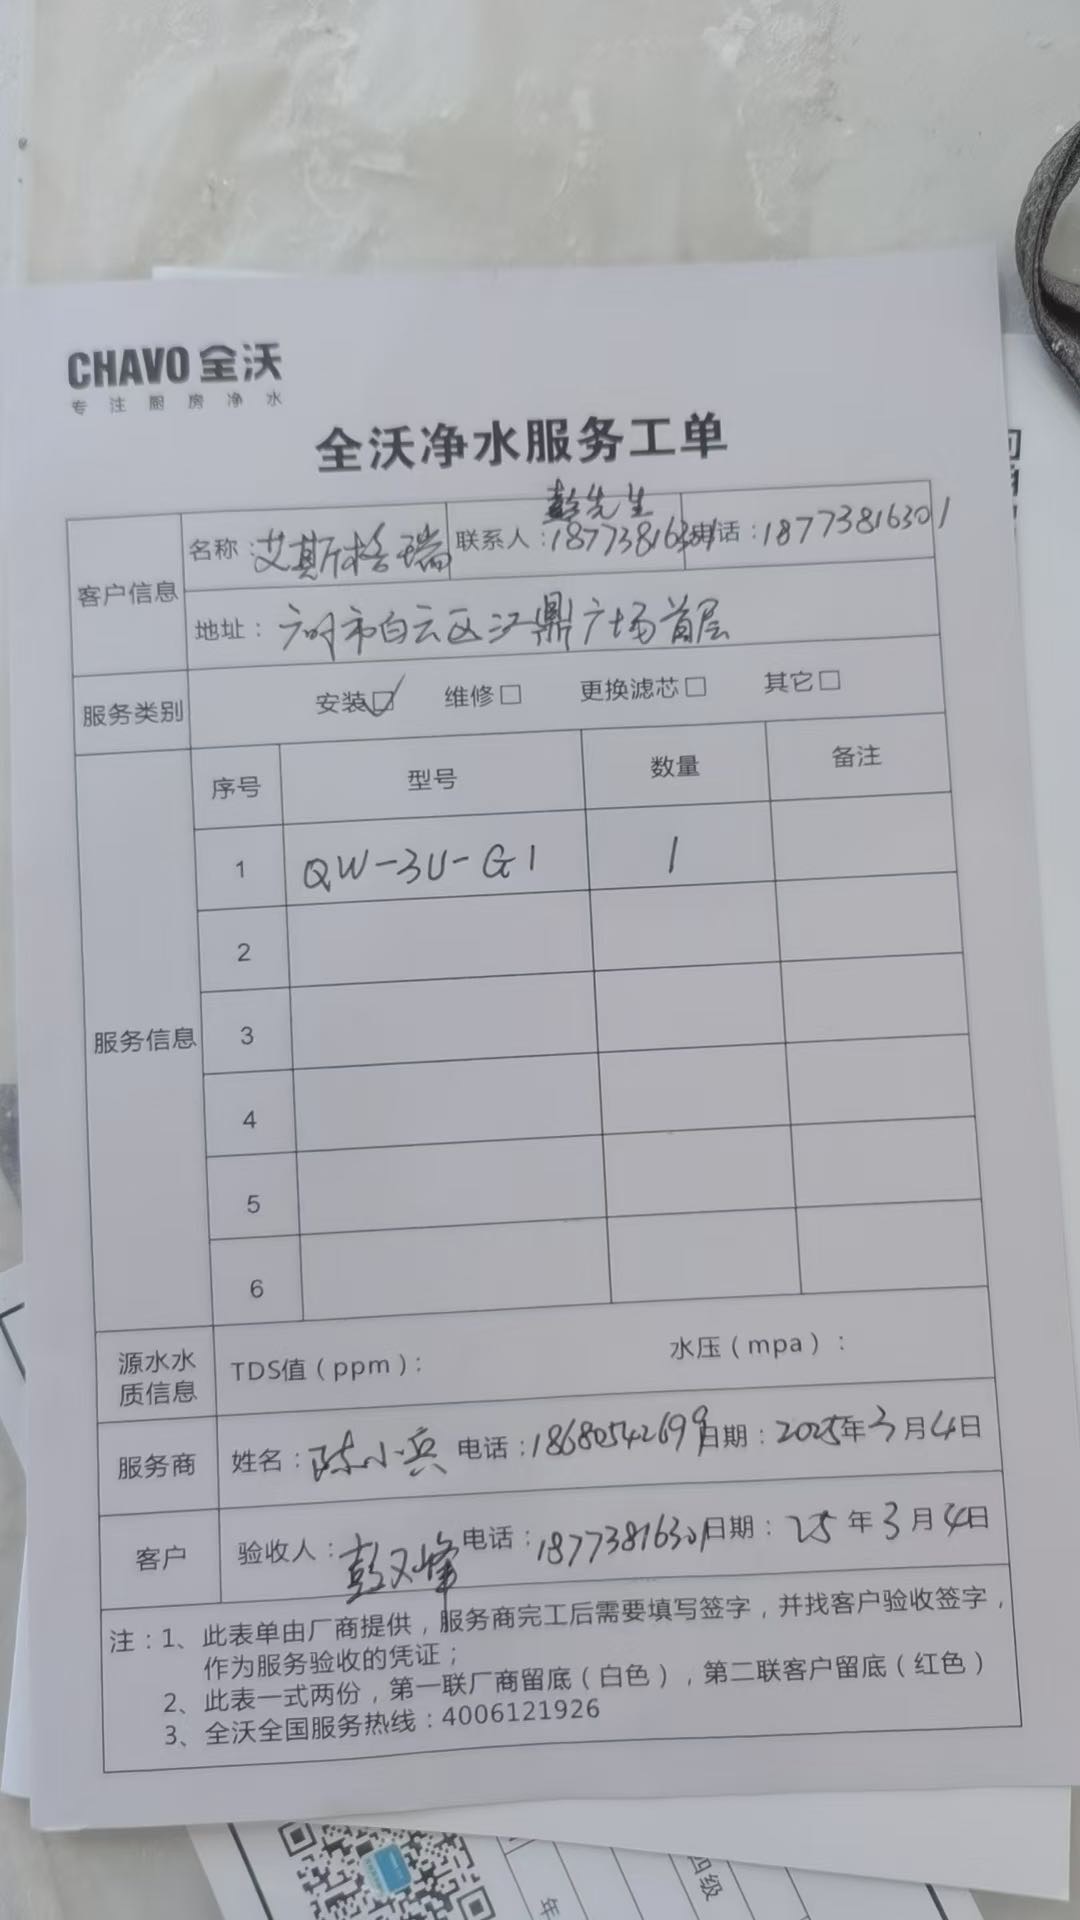 CHAVO 全沃
专注厨房净水
全沃净水服务工单
客户信息
名称：艾斯格瑞
联系人：彭先生 18773816301
电话：18773816301
地址：广州市白云区江鼎广场首层
服务类别
安装☑ 维修□ 更换滤芯□ 其它□
服务信息
序号 型号 数量 备注
1 QW-3U-G1 1
2
3
4
5
6
源水水质信息
TDS值（ppm）： 水压（mpa）：
服务商
姓名：陈小兵 电话：18680542699 日期：2025年3月4日
客户
验收人：彭又峰 电话：18773816301 日期：25年3月4日
注：1、此表单由厂商提供，服务商完工后需要填写签字，并找客户验收签字，
作为服务验收的凭证；
2、此表一式两份，第一联厂商留底（白色），第二联客户留底（红色）
3、全沃全国服务热线：4006121926
四级
年